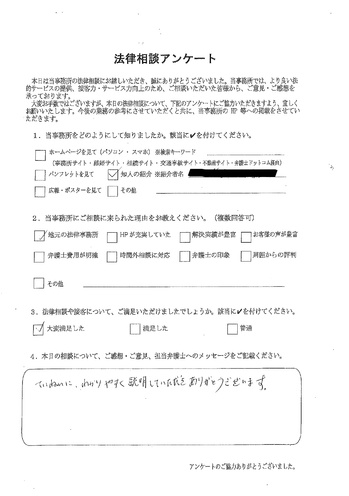 法律相談アンケート
本日は当事務所の法律相談にお越しいただき、誠にありがとうございました。当事務所では、より良い法
的サービスの提供、接客力・サービス力向上のため、ご相談いただいた皆様から、ご意見・ご感想を
承っております。
大変お手数ではございますが、本日の法律相談について、下記のアンケートにご協力いただきますよう、宜しく
お願いいたします。今後の業務の参考にさせていただくと共に、当事務所の HP 等への掲載をさせてい
ただきます。
1. 当事務所をどのようにして知りましたか。該当に✔を付けてください。
ホームページを見て (パソコン ・ スマホ) ※検索キーワード
(事務所サイト・離婚サイト・相続サイト・交通事故サイト・不動産サイト・弁護士ドットコム経由)
パンフレットを見て ✓ 知人の紹介 ※紹介者名
広報・ポスターを見て その他
2. 当事務所にご相談に来られた理由をお教えください。(複数回答可)
✓ 地元の法律事務所 HPが充実していた 解決実績が豊富 お客様の声が豊富
弁護士費用が明確 時間外相談に対応 弁護士の印象 周囲からの評判
その他
3. 法律相談や接客について、ご満足いただけましたでしょうか。該当に✔を付けてください。
✓ 大変満足した 満足した 普通
4. 本日の相談について、ご感想・ご意見、担当弁護士へのメッセージをご記載ください。
ていねいに、わかりやすく説明していただきありがとうございます。
アンケートのご協力ありがとうございました。